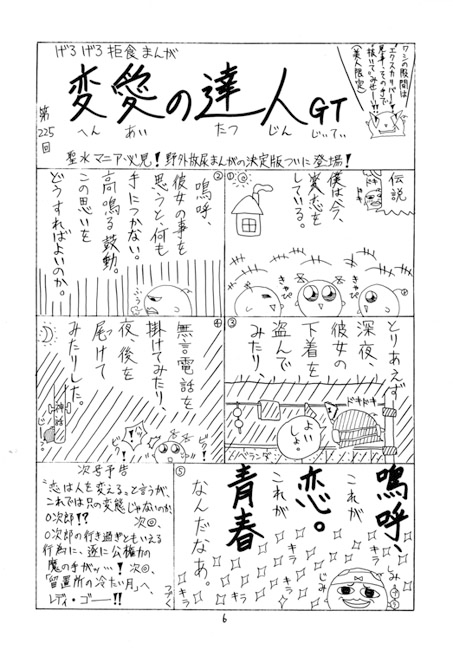 げろげろ拒食まんが
変愛の達人GT
へん あい たつ じん じぃてぃ
第
225
回
ワシの股間は
エクスカリバー!
見事、その手で
抜いてみせい!!
(美人限定)
聖水マニア必見!野外放尿まんがの決定版ついに登場!
伝説
ドキ
ドキ
①
僕は今、
変恋を
している。
きゃぴ
きゃぴ
②
嗚呼、
彼女の事を
思うと、何も
手につかない。
高鳴る鼓動。
この思いを
どうすればよいのか。
ふうぅ
③
とりあえず
深夜、
彼女の
下着を
盗んで
みたり、
ドキドキ
よい
しょ。
ベランダ
④
無言電話を
掛けてみたり、
夜、後を
尾けて
みたりした。
電話
ビクッ!
ビクッ!
⑤
嗚呼、
これが
恋。
これが
青春
なんだなあ。
キラ
キラ
キラ
キラ
じみ
じみ
次号予告
"恋は人を変える"と言うが、
これでは只の変態じゃないのか、
O次郎!? 次回、
O次郎の行き過ぎともいえる
行為に、遂に公権力の
魔の手がッ…! 次回、
「留置所の冷たい月」へ、
レディ・ゴー!!
つづく
6